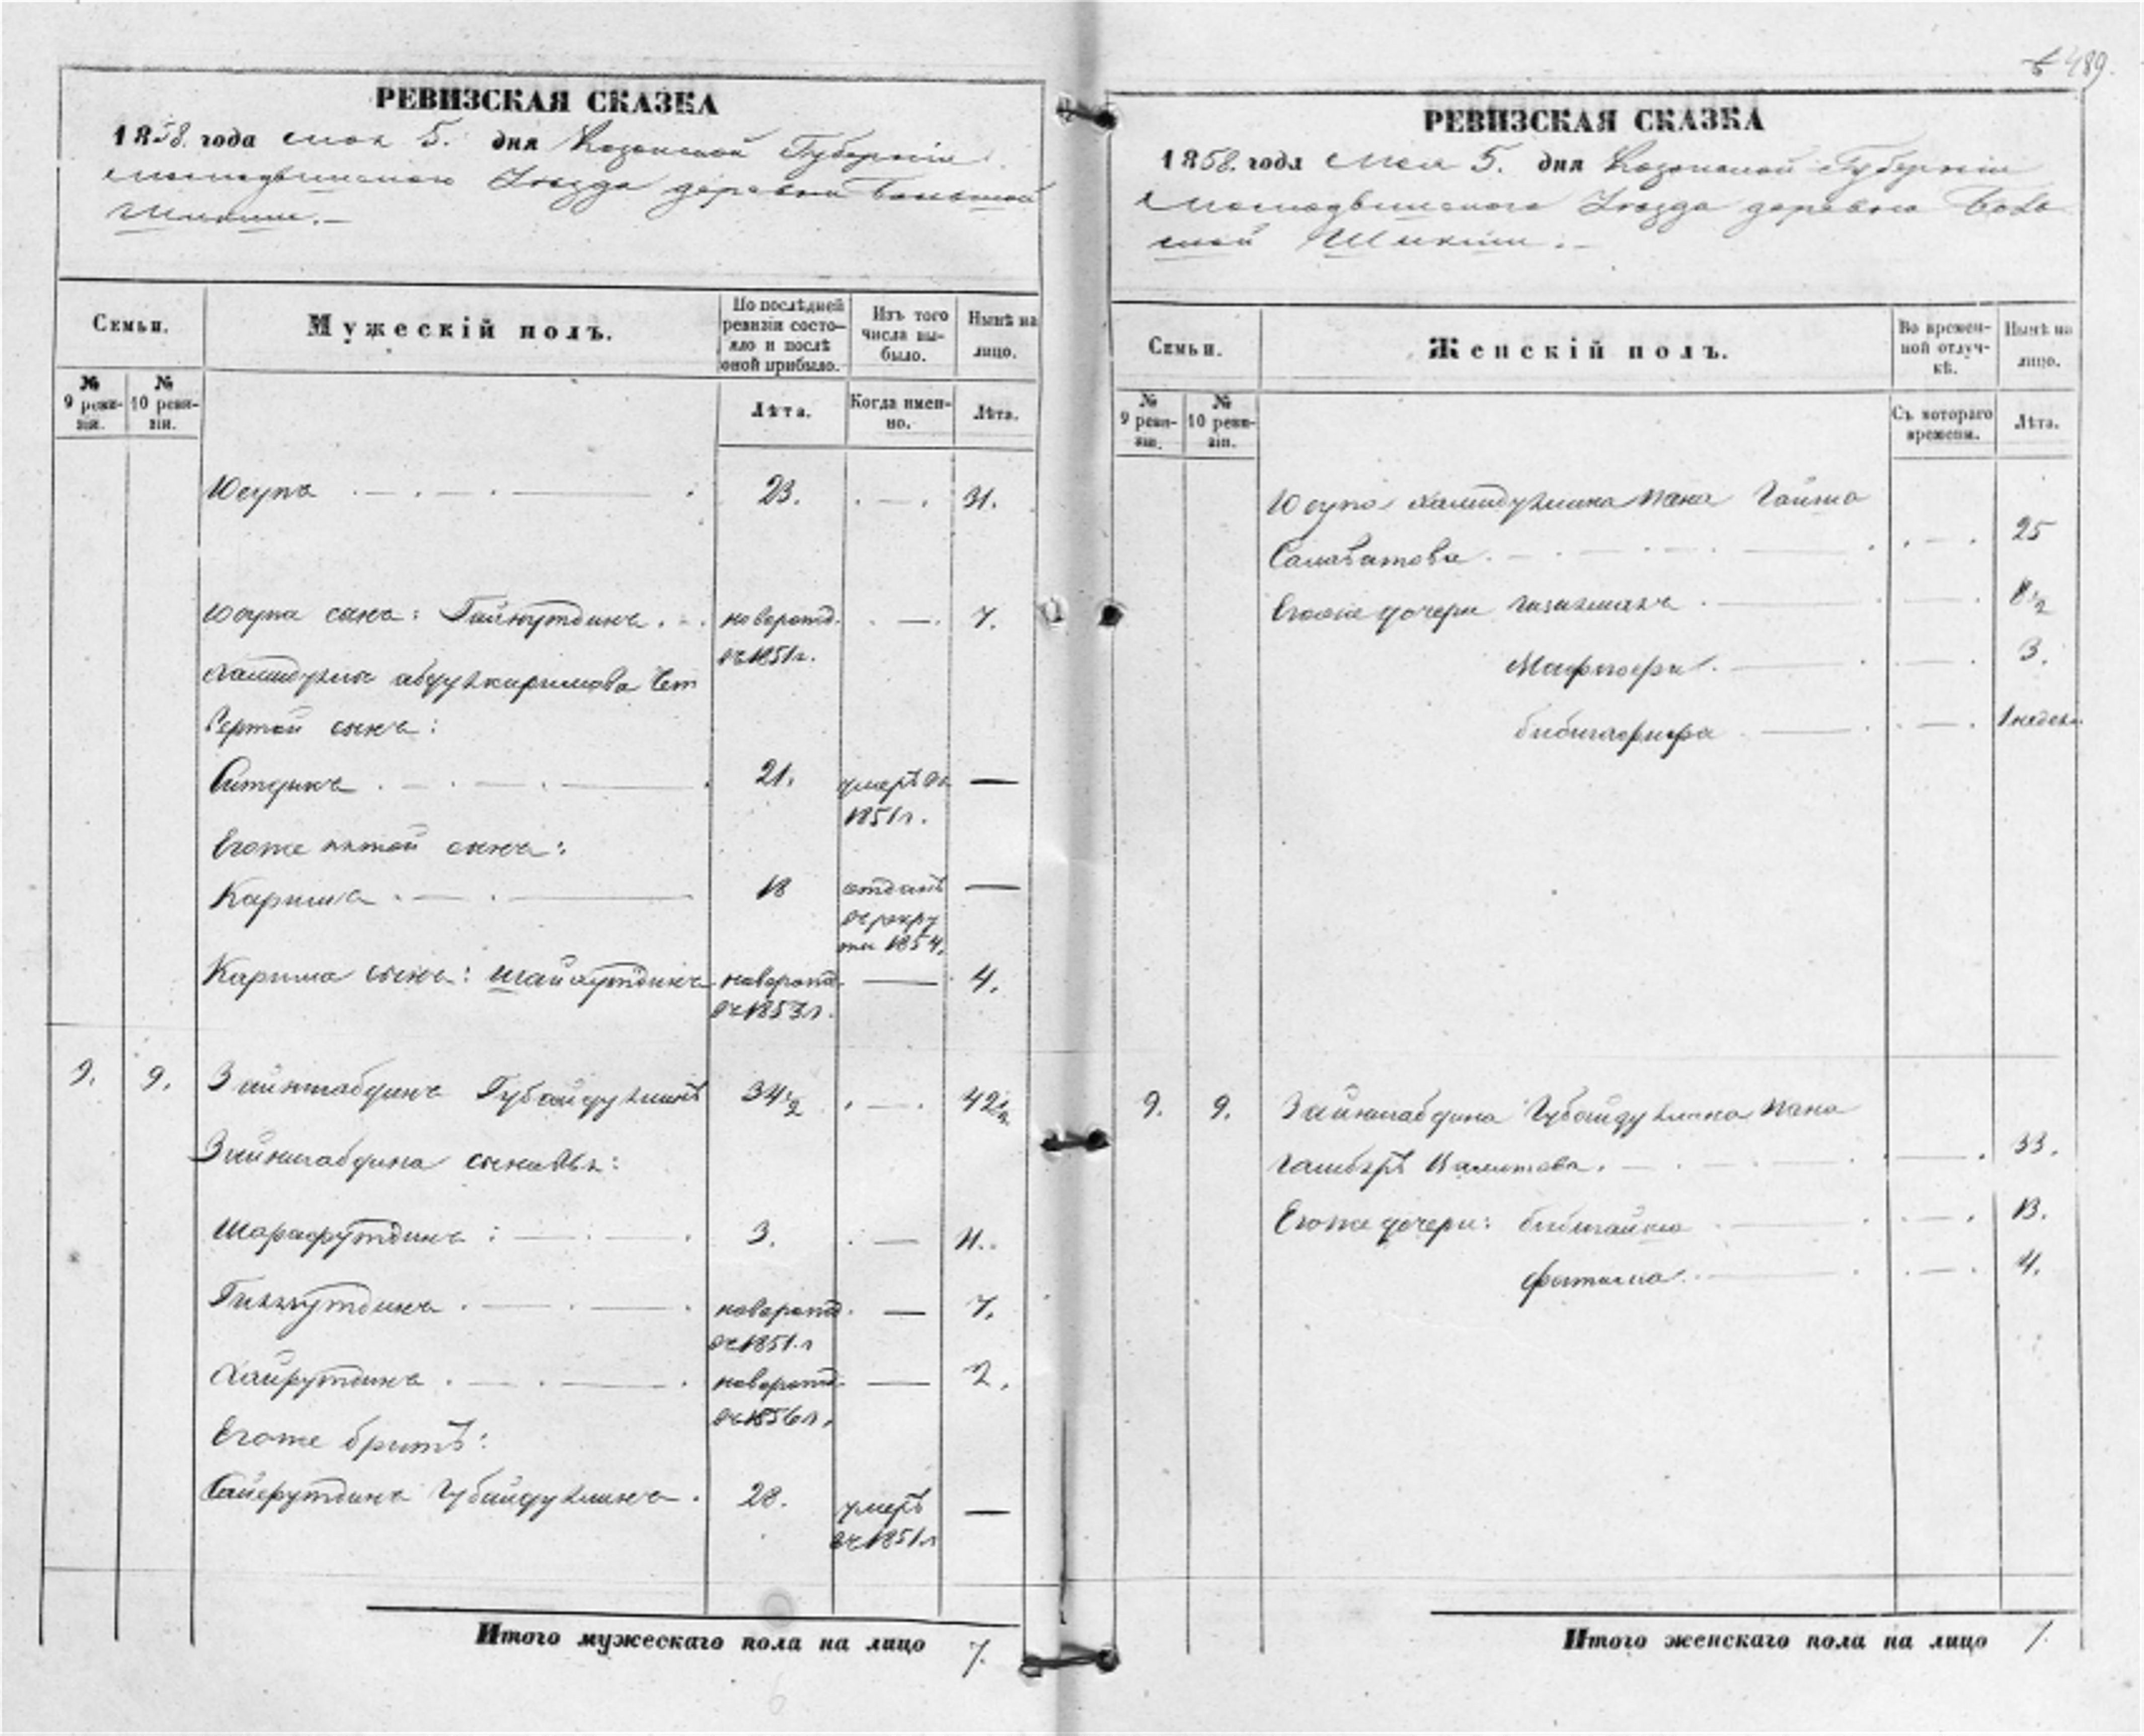 489.
РЕВИЗСКАЯ СКАЗКА
1858. года мая 5. дня Казанской Губернии
Мамадышского Уѣзда деревни Большой
Шикши.
Семьи.
№ 9 ревизіи.
№ 10 ревизіи.
Мужескій полъ.
По послѣдней ревизіи состояло и послѣ оной прибыло.
Лѣта.
Изъ того числа выбыло.
Когда именно.
Нынѣ на лицо.
Лѣта.
Юсупъ 23. 31.
Юсупа сынъ: Гайнутдинъ новорожд. 7.
въ 1851г.
Хамидулы абдулкаримова Чет
вертой сынъ:
Ситдикъ 21. умеръ въ —
1851г.
Егоже пятой сынъ:
Каримъ 18 отданъ —
въ рекру
ты 1854.
Карима сынъ: шайхутдинъ новорожд. — 4.
въ 1853г.
9. 9. Зайнигабдинъ Губайдулинъ 34½ 42½
Зайнигабдина сыновья:
Шарафутдинъ: 3. — 11.
Гиззутдинъ новорожд. — 7.
въ 1851.г
Хайрутдинъ новорожд. — 2.
въ 1856г.
Егоже братъ:
Сайфутдинъ Губайдулинъ 28. умеръ —
въ 1851г
Итого мужескаго пола на лицо 7.
РЕВИЗСКАЯ СКАЗКА
1858. года Мая 5. дня Казанской Губернии
Мамадышского Уѣзда деревни Боль
шой Шикши.
Семьи.
№ 9 ревизіи.
№ 10 ревизіи.
Женскій полъ.
Во временной отлучкѣ.
Съ котораго времени.
Нынѣ на лицо.
Лѣта.
Юсупа Хамидулина жена Гайша
Салаватова 25
Егоже дочери 8½
Мафтюфа 3.
бибигафифа 1 недел.
9. 9. Зайнигабдина Губайдулина жена
33.
Егоже дочери: бибигайша 13.
фатима 4.
Итого женскаго пола на лицо 7.